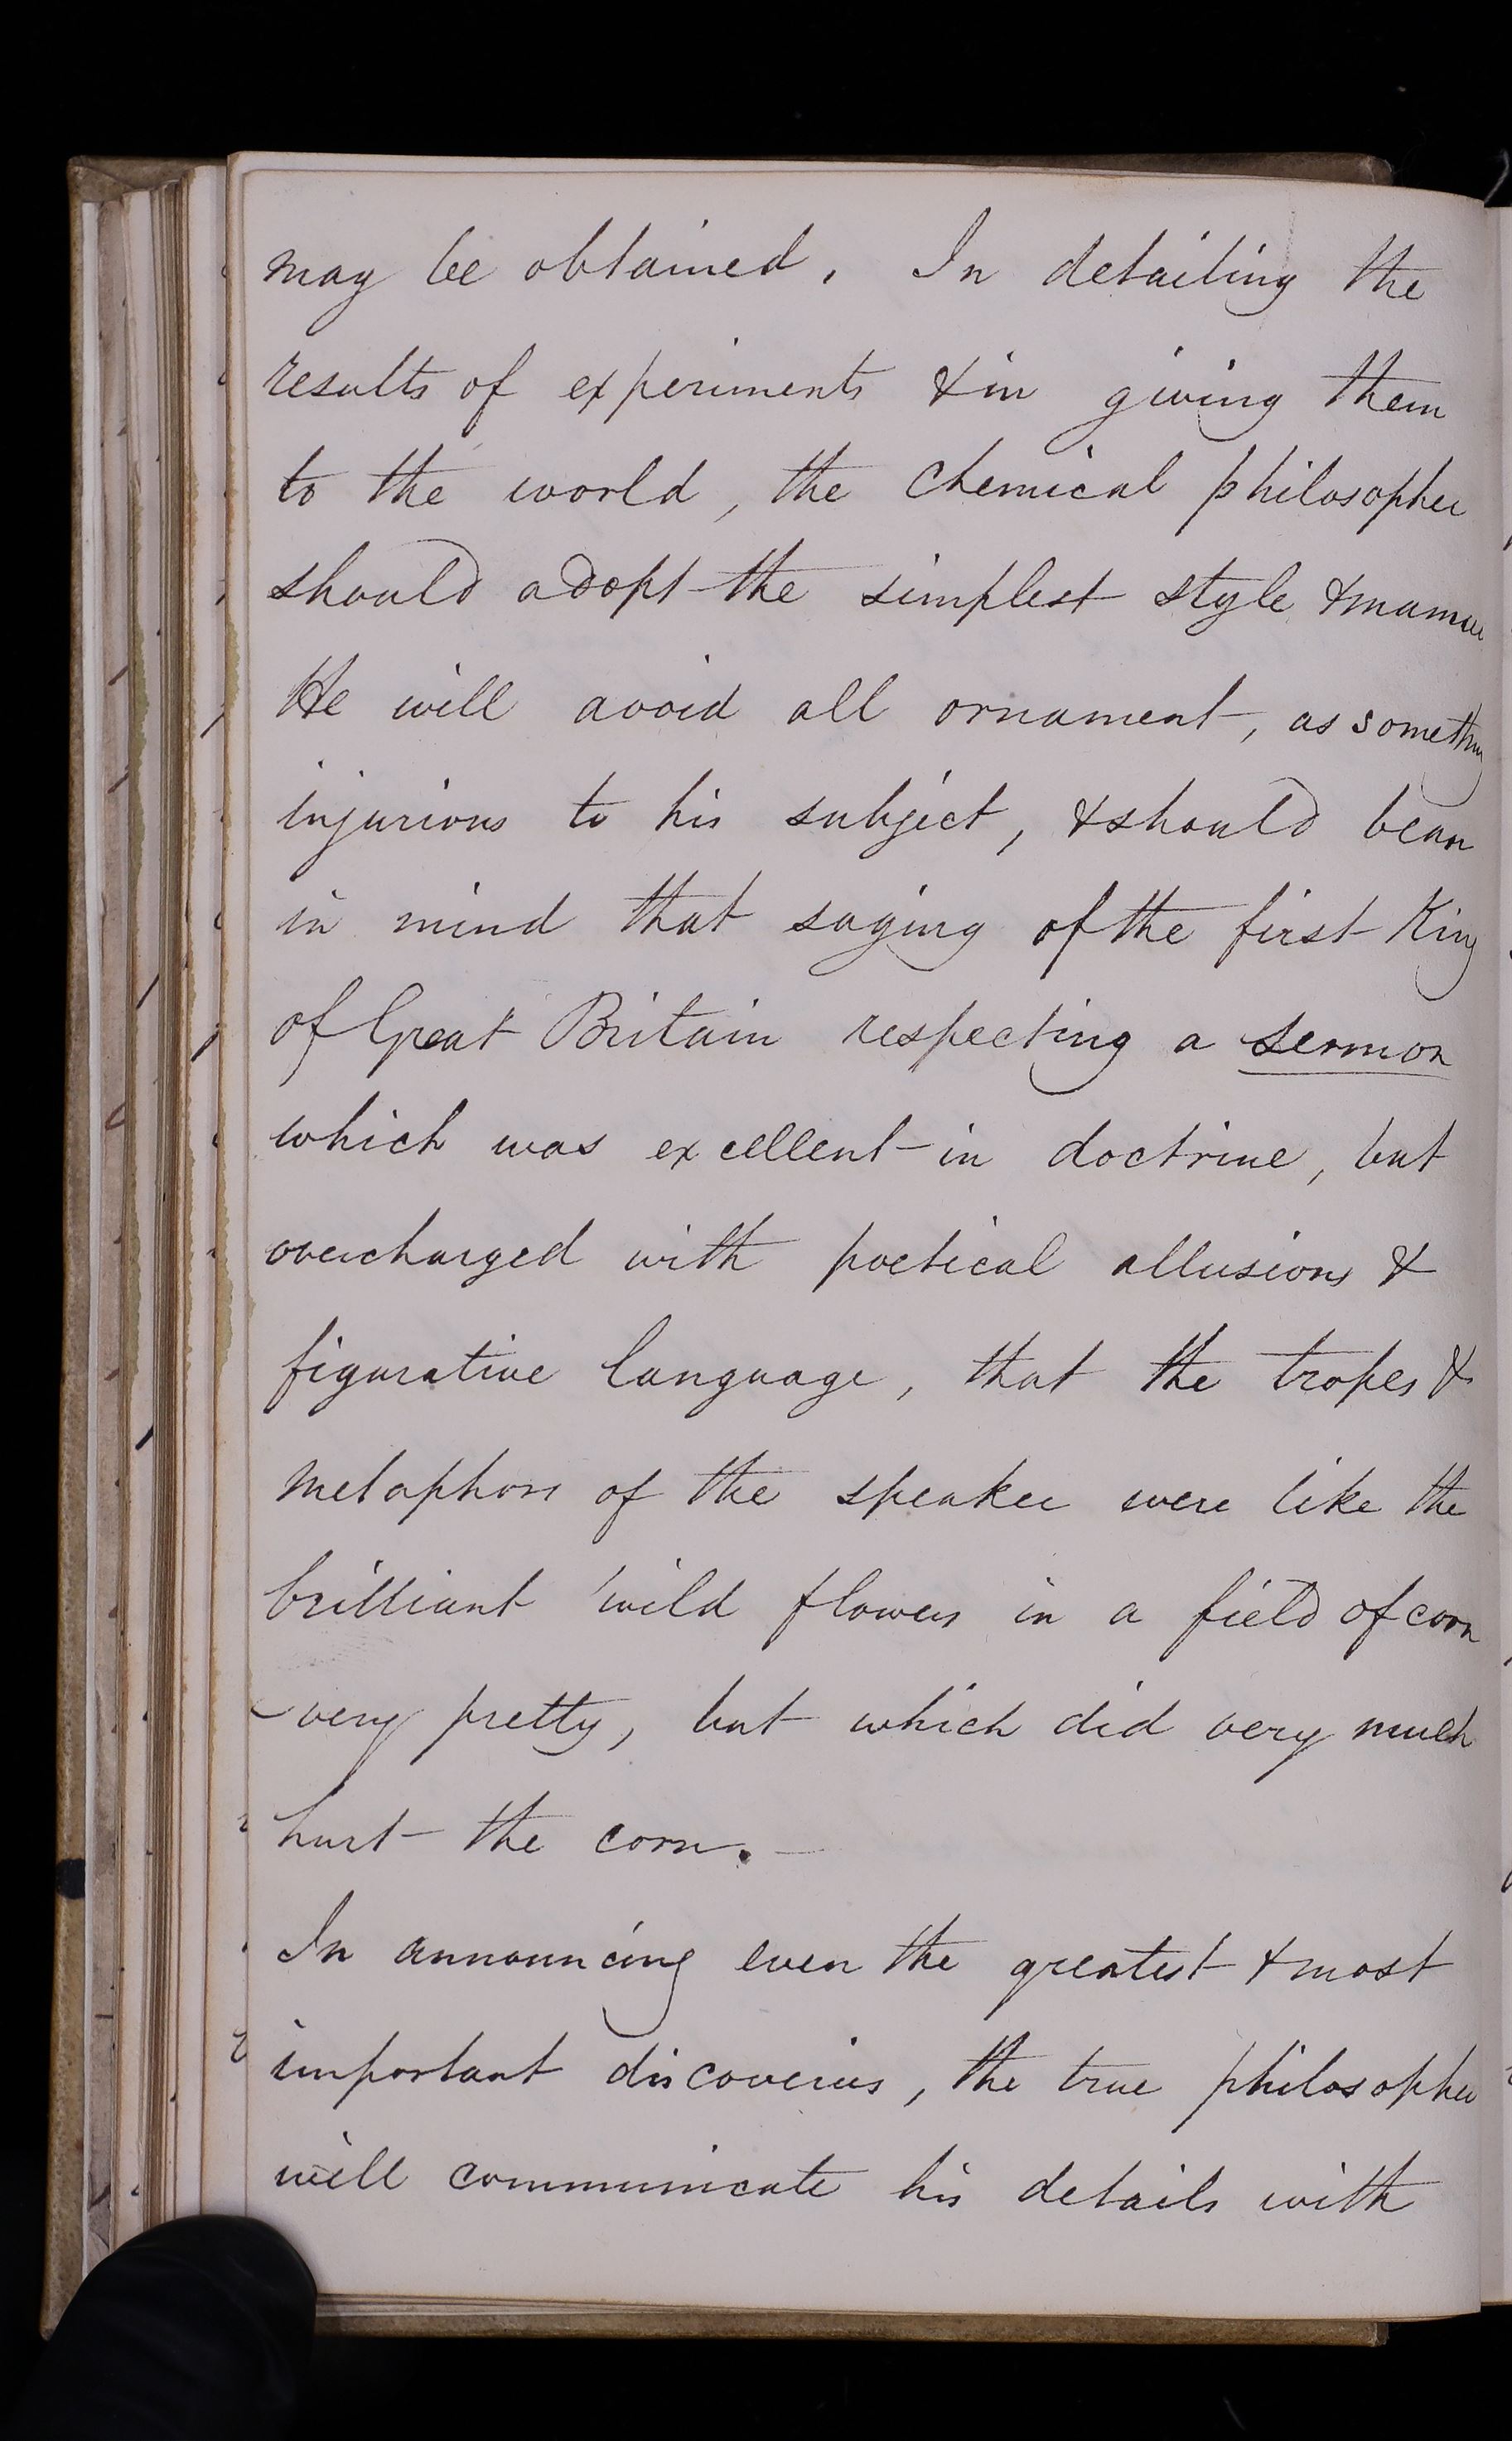 may be obtained. In detailing the
results of experiments & in giving them
to the world, the Chemical philosopher
should adopt the simplest style & manner
He will avoid all ornament, as something
injurious to his subject, & should bear
in mind that saying of the first King
of Great Britain respecting a sermon
which was excellent in doctrine, but
overcharged with poetical allusions &
figurative language, that the tropes &
metaphors of the speaker were like the
brilliant wild flowers in a field of corn
very pretty, but which did very much
hurt the corn. —
In announcing even the greatest & most
important discoveries, the true philosopher
will communicate his details with